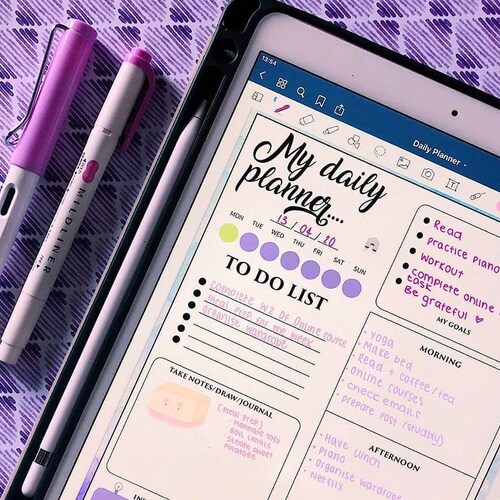 13:54
Daily Planner
My daily
planner....
13/04/20
MON TUE WED THU FRI SAT SUN
TO DO LIST
complete W2 of online course
meal prep for the week
organise wardrobe
Read
practice piano
workout
complete online
task
Be grateful
MY GOALS
MORNING
- yoga
- Make bed
- Read + coffee/tea
- online courses
- check emails
- prepare post (studybly)
TAKE NOTES/DRAW/JOURNAL
[meal prep]
- marinate tofu
- boil lentils
- steam sweet
potatoes
AFTERNOON
- Have lunch
- Piano
- organise wardrobe
- Netflix
MILDLINER